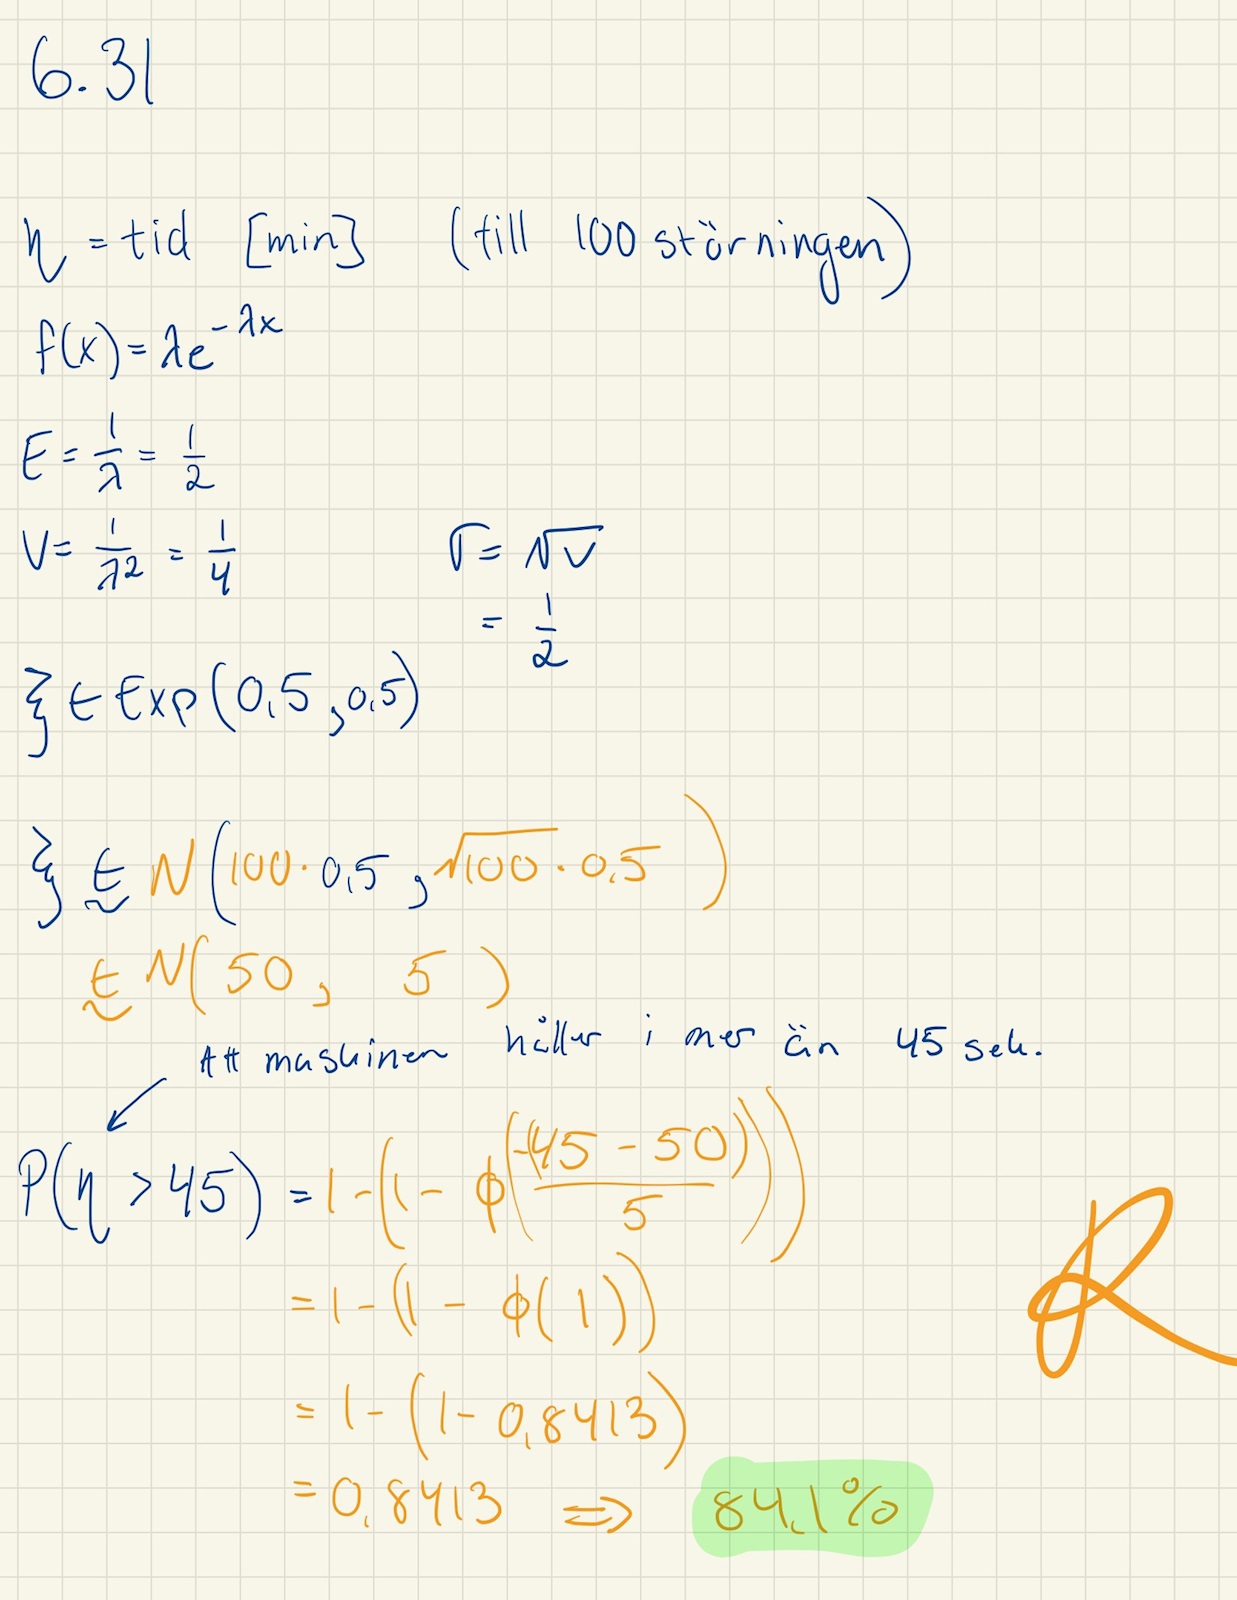 6.31
η = tid [min] (till 100 störningen)
f(x) = λe^-λx
E = 1/λ = 1/2
V = 1/λ² = 1/4 σ = √V
= 1/2
ξ ∈ Exp(0,5, 0,5)
ξ ∈̰ N(100 · 0,5, √100 · 0,5)
∈̰ N(50, 5)
Att maskinen håller i mer än 45 sek.
P(η > 45) = 1 - (1 - ϕ(-(45 - 50)/5))
= 1 - (1 - ϕ(1))
= 1 - (1 - 0,8413)
= 0,8413 ⇒ 84,1%
R